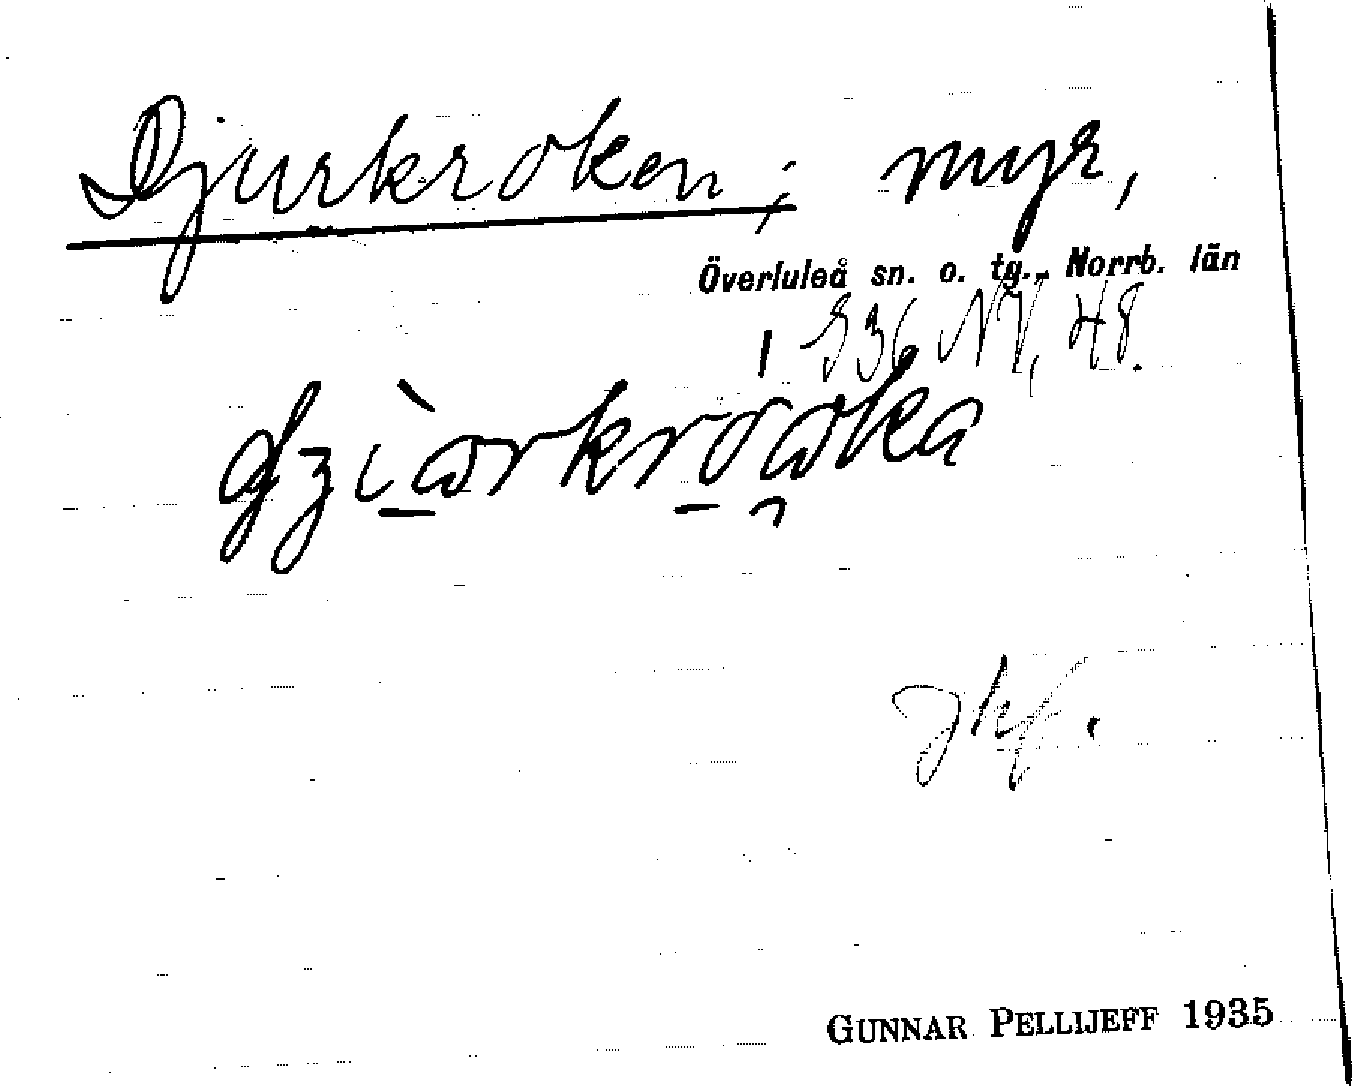 Djurkroken; myr,
Överluleå sn. o. tg., Norrb. län
1 G36 NV, 48.
GUNNAR PELLIJEFF 1935